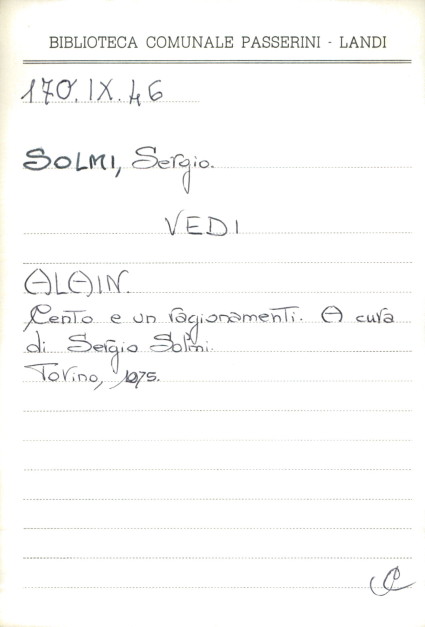 BIBLIOTECA COMUNALE PASSERINI - LANDI
170.IX.46
SOLMI, Sergio.
VEDI
ALAIN.
Cento e un ragionamenti. A cura
di Sergio Solmi.
Torino, 1975.